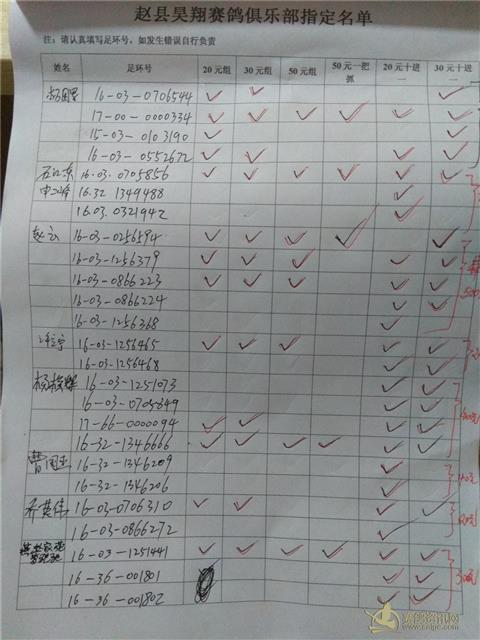 赵县昊翔赛鸽俱乐部指定名单
注:请认真填写足环号,如发生错误自行负责
姓名 足环号 20元组 30元组 50元组 50元一把抓 20元十进一 30元十进一
16-03-0706544
17-00-0000334
15-03-0103190
16-03-0552672
16.03.0705856
16.32 1349488
16.03.0321942
赵云 16-03-0256594
16-03-1256379
16-03-0866223
16-03-0866224
16-03-1256368
16-03-1256465
16-03-1256468
16-03-1251073
16-03-0705849
17-66-0000094
16-32-1346666
曹国 16-32-1346209
16-32-1346206
乔英伟 16-03-0706310
16-03-0866272
16-03-1251441
16-36-001801
16-36-001802
赛鸽资讯网
www.saige.com